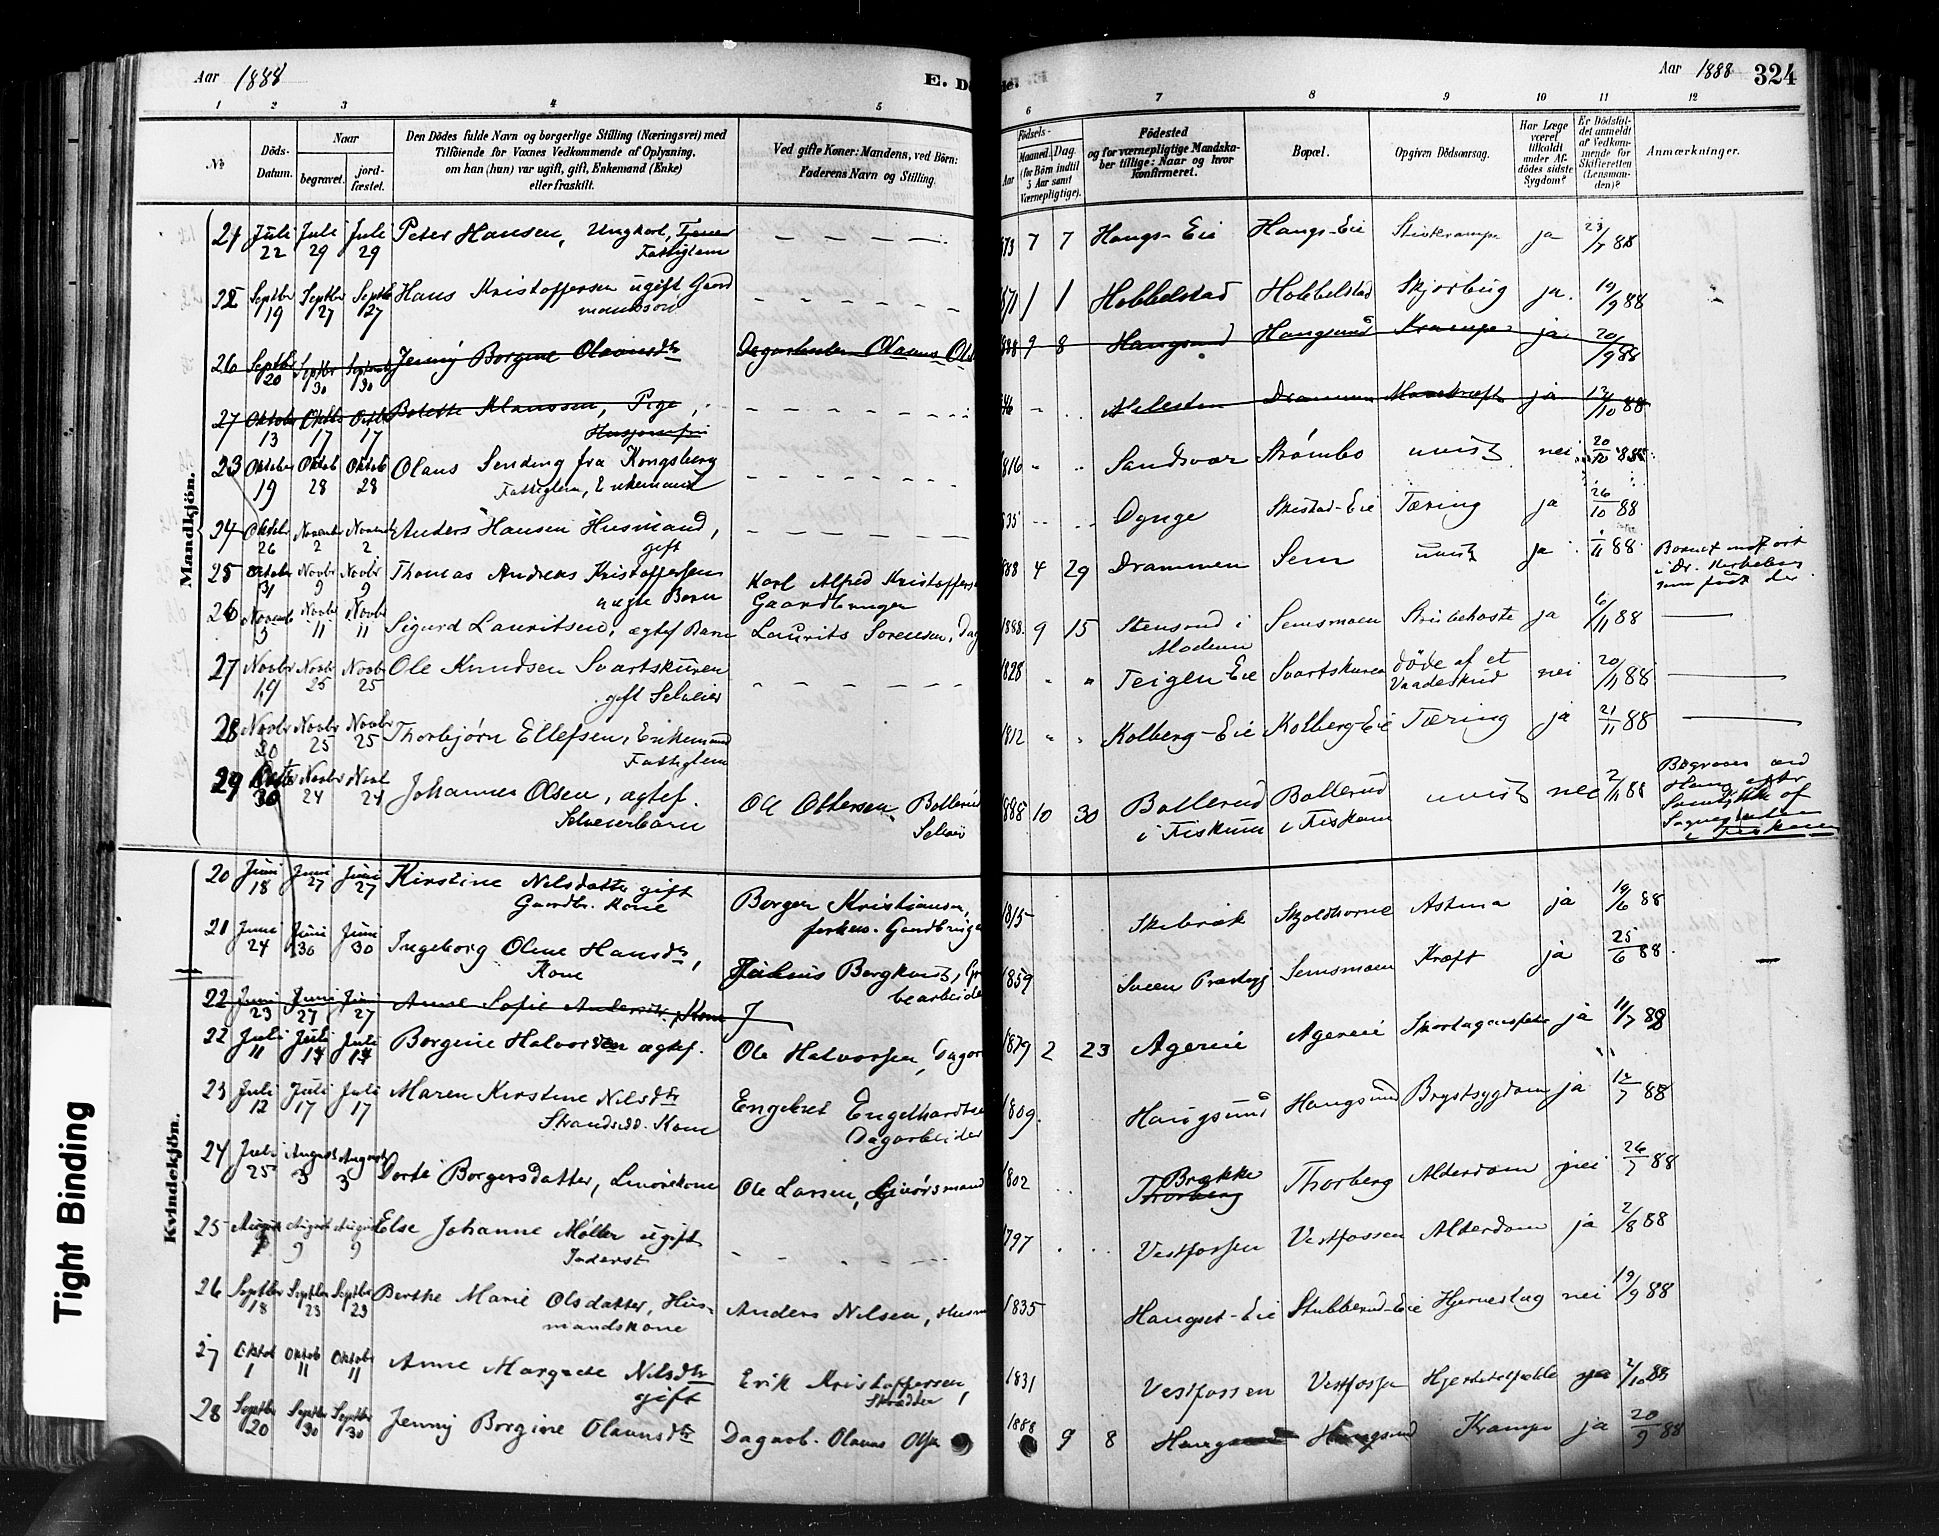 Aar 1888
E. Dö
1 2 3 4 5
№
Döds-
Datum.
Naar
begravet.
jord-
fæstet.
Den Dödes fulde Navn og borgerlige Stilling (Næringsvei) med
Tilföiende for Voxnes Vedkommende af Oplysning,
om han (hun) var ugift, gift, Enkemand (Enke)
eller fraskilt.
Ved gifte Koner: Mandens, ved Börn:
Faderens Navn og Stilling.
de.
Aar 1888 324
6 7 8 9 10 11 12
Födsels-
Aar Maaned. Dag.
(for Börn indtil
5 Aar samt
Værnepligtige).
Födested
og for værnepligtige Mandska-
ber tillige: Naar og hvor
konfirmeret.
Bopæl.
Opgiven Dödsaarsag.
Har Læge
været
tilkaldt
under Af-
dödes sidste
Sygdom?
Er Dödsfal-
det anmeldt
af Vedkom-
mende for
Skifteretten
(Lensman-
den)?
Anmærkninger.
Mandkjön.
21 Juli 22 Juli 29 Juli 29 Peter Hansen, Ungkarl,
Fattiglem
873 7 7 Haugs-Eie Haugs-Eie ja 23/7 88
22 Septbr 19 Septbr 27 Septbr 27 Hans Kristoffersen ugift Gaard
mandssøn
871 1 1 Hobbelstad Hobbelstad Skjørbug ja. 19/9 88
26 Septbr 20 Septbr 30 Septbr 30 Jenny Borgine Olavusdtr Dagarbeider Olavus Ols
888 9 8 Haugsund Haugsund Krampe ja 20/9 88
27 Oktober 13 Oktbr 17 Oktb 17 Bolette Klaussen, Pige,
Husjomfru
46 Drammen Mavekræft ja 13/10 88
23 Oktober 19 Oktob 28 Oktob 28 Olaus Sending fra Kongsberg
Fattiglem, Enkemand
816 Sandsvær Strømbo uvist nei 20/10 88
24 Oktobr 26 Novemb 2 Novemb 2 Anders Hansen Husmand,
gift
835 Dynge Skistad-Eie Tæring ja 26/10 88
25 Oktober 31 Novbr 9 Novbr 9 Thomas Andreas Kristoffersen
uægte Barn Karl Alfred Kristoffers
Gaardbruger
888 4 29 Drammen Sem uvist ja 1/11 88
26 Novemb 5 Novbr 11 Novbr 11 Sigurd Lauritsen, ægtef Barn Laurits Sørensen, Dag
1888. 9 15 Stensrud i
Modum Semsmoen Strubehoste ja 6/11 88
27 Novbr 19 Novbr 25 Novbr 25 Ole Knudsen Svartskuren
gift Selveier
1828 " " Teigen Eie Svartskuren døde af et
Vaadeskud nei 20/11 88
28 Novbr 20 Novbr 25 Novbr 25 Thorbjørn Ellefsen, Enkemand
Fattiglem
1812 " " Kolberg-Eie Kolberg-Eie Tæring ja 21/11 88
29 30 Novbr 24 Novb 24 Johannes Olsen, ægtef.
Selveierbarn Ole Ottersen Bollerud
Selveier
888 10 30 Bollerud
i Fiskum Bollerud
i Fiskum uvist nei 2/11 88
Kvindekjön.
20 Juni 18 Juni 27 Juni 27 Kirstine Nilsdatter gift
Gaardbr. Kone Borger Kristiansen,
forhen. Gaardbruge
1815 Skibræk Skjoldhorne Astma ja 19/6 88
21 Juni 24 Juni 30 Juni 30 Ingeborg Oline Hansdtr,
Kone Julius Bergkvist, Gr
bearbeide
1859 Sveen Præstegj Semsmoen Kræft ja 25/6 88
22 Juni 23 Juni 27 Juni 27 Anne Sofie Andersdtr. Kone J
22 Juli 11 Juli 17 Juli 17 Borgine Halvorsen ægtef. Ole Halvorsen, Dagar
1879 2 23 Ager eie Ager eie Skarlagensfeber ja 11/7 88
23 Juli 12 Juli 17 Juli 17 Maren Kirstine Nilsdtr
Strandsidd. Kone Engebret Engelhardtse
Dagarbeider
1809. Haugsund Haugsund Brystsygdom ja 12/7 88
24 Juli 25 August 3 August 3 Dorte Borgersdatter, Livørekone Ole Larsen, Livørsmand
1802 Brække
Thorberg Thorberg Alderdom nei 26/7 88
25 August 1 August 9 August 9 Else Johanne Møller ugift
Inderst
1797 Vestfossen Vestfossen Alderdom ja 2/8 88
26 Septbr 18 Septbr 23 Septbr 23 Berthe Marie Olsdatter, Hus-
mandskone Anders Nilsen, Husm
1835 Haugset-Eie Stubberud-Eie Hjerneslag nei 19/9 88
27 Oktob 1 Oktob 11 Oktobr 11 Anne Margrete Nilsdtr
gift Erik Kristoffersen,
Skrædder
1831 Vestfossen Vestfossen ja 2/10 88
28 Septbr 20 Septbr 30 Septbr 30 Jenny Borgine Olavusdtr Dagarb. Olavus Olse
1888 9 8 Haugsund Haugsund Krampe ja 20/9 88
Tight Binding